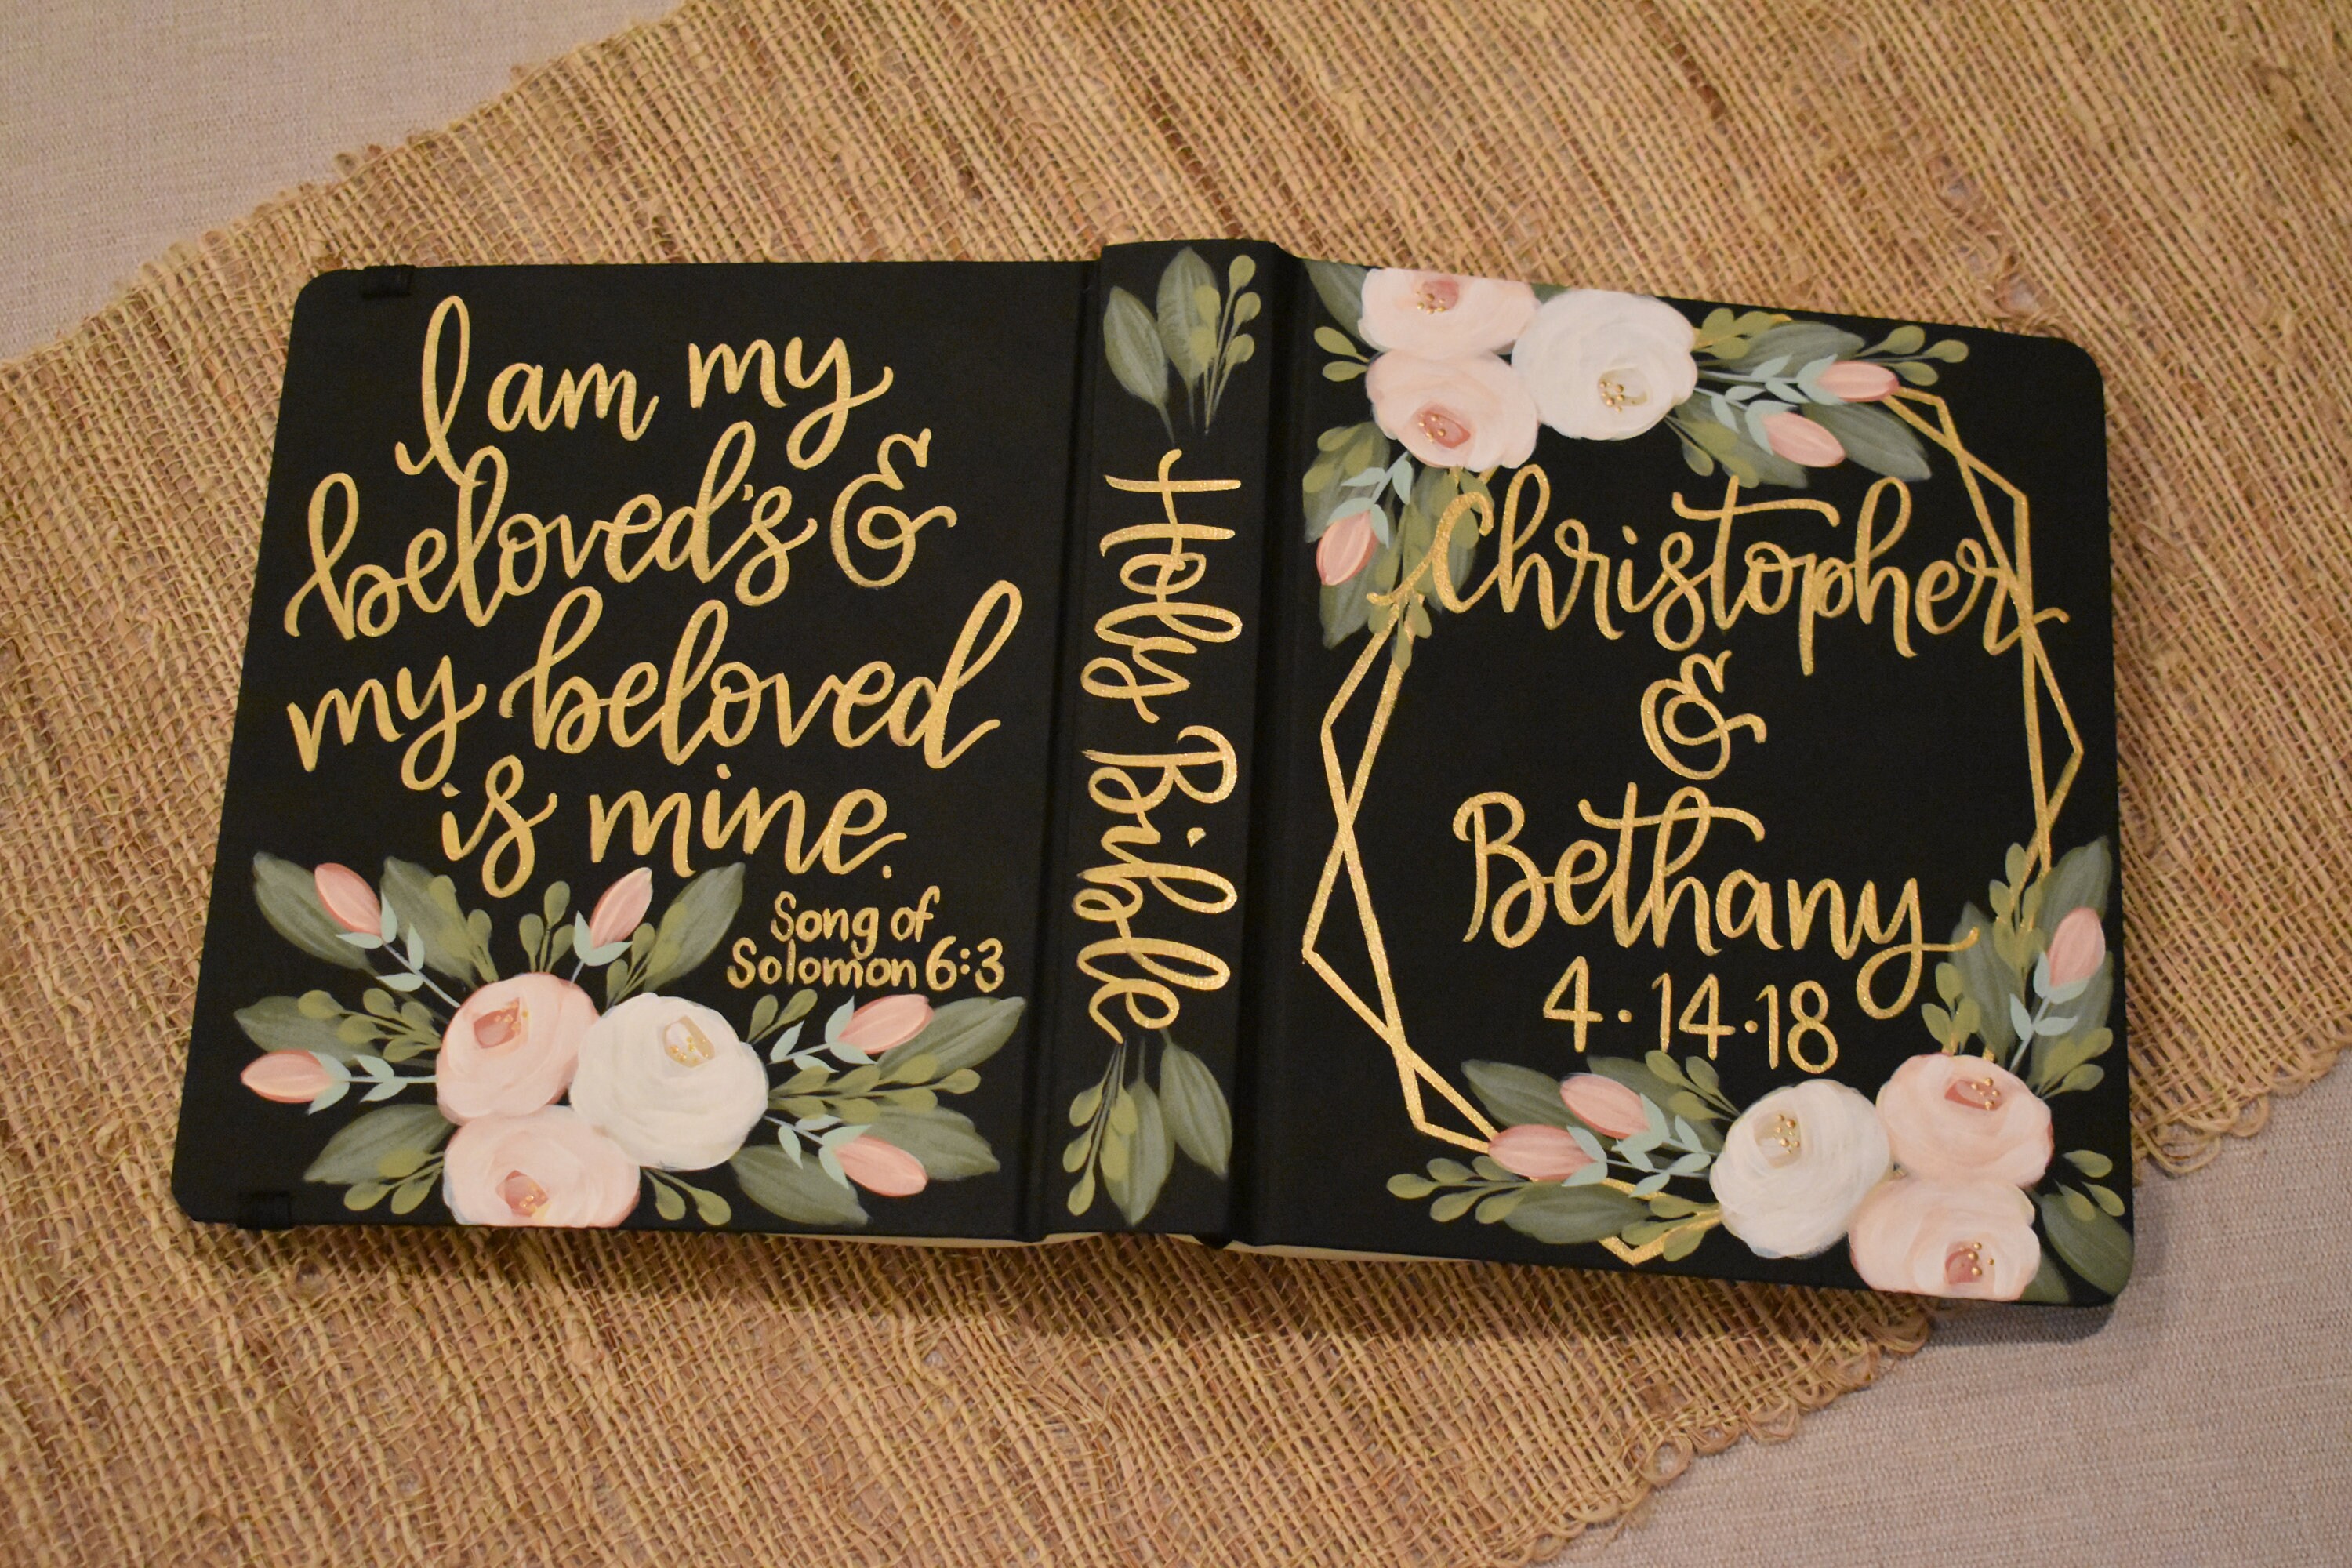 I am my
beloved's &
my beloved
is mine.
Song of
Solomon 6:3
Holy Bible
Christopher
&
Bethany
4.14.18